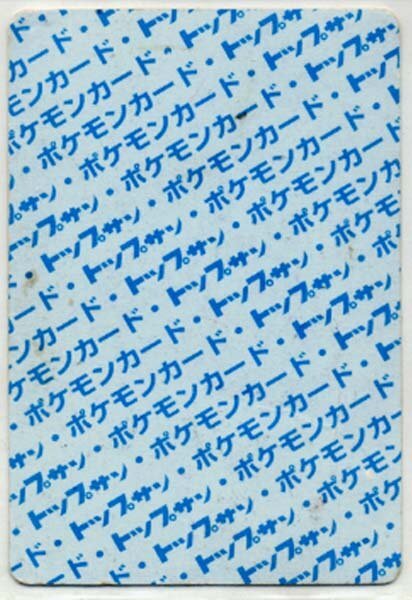 ド・
カード・トップ
モンカード・トップサン・
ポケモンカード・トップサン・
・ポケモンカード・トップサン
サン・ポケモンカード・トップ
トップサン・ポケモンカード・
・トップサン・ポケモンカード
ード・トップサン・ポケモンカ
カード・トップサン・ポケモ
ンカード・トップサン・ポケ
ケモンカード・トップサン・
・ポケモンカード・トップサン
ン・ポケモンカード・トップ
プサン・ポケモンカード・
トップサン・ポケモンカード
・トップサン・ポケモンカー
ード・トップサン・ポケモン
トップサン・ポケ